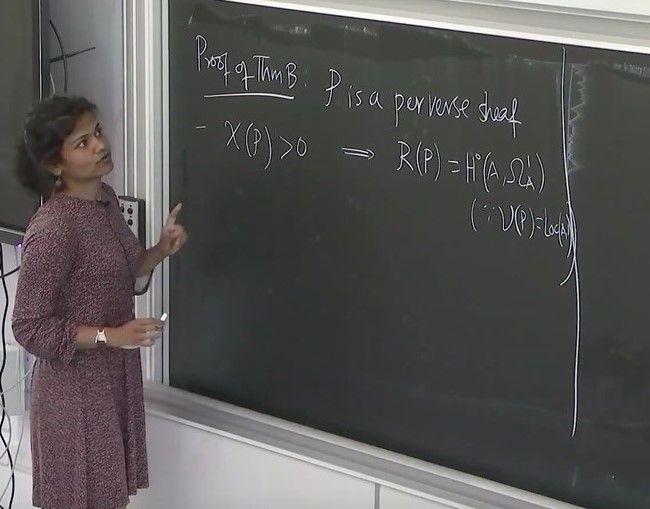 Proof of Thm B: P is a perverse sheaf
- χ(P) > 0 ⟹ R(P) = H⁰(A, Ω¹_A)
(∵ V(P) = Loc(A))